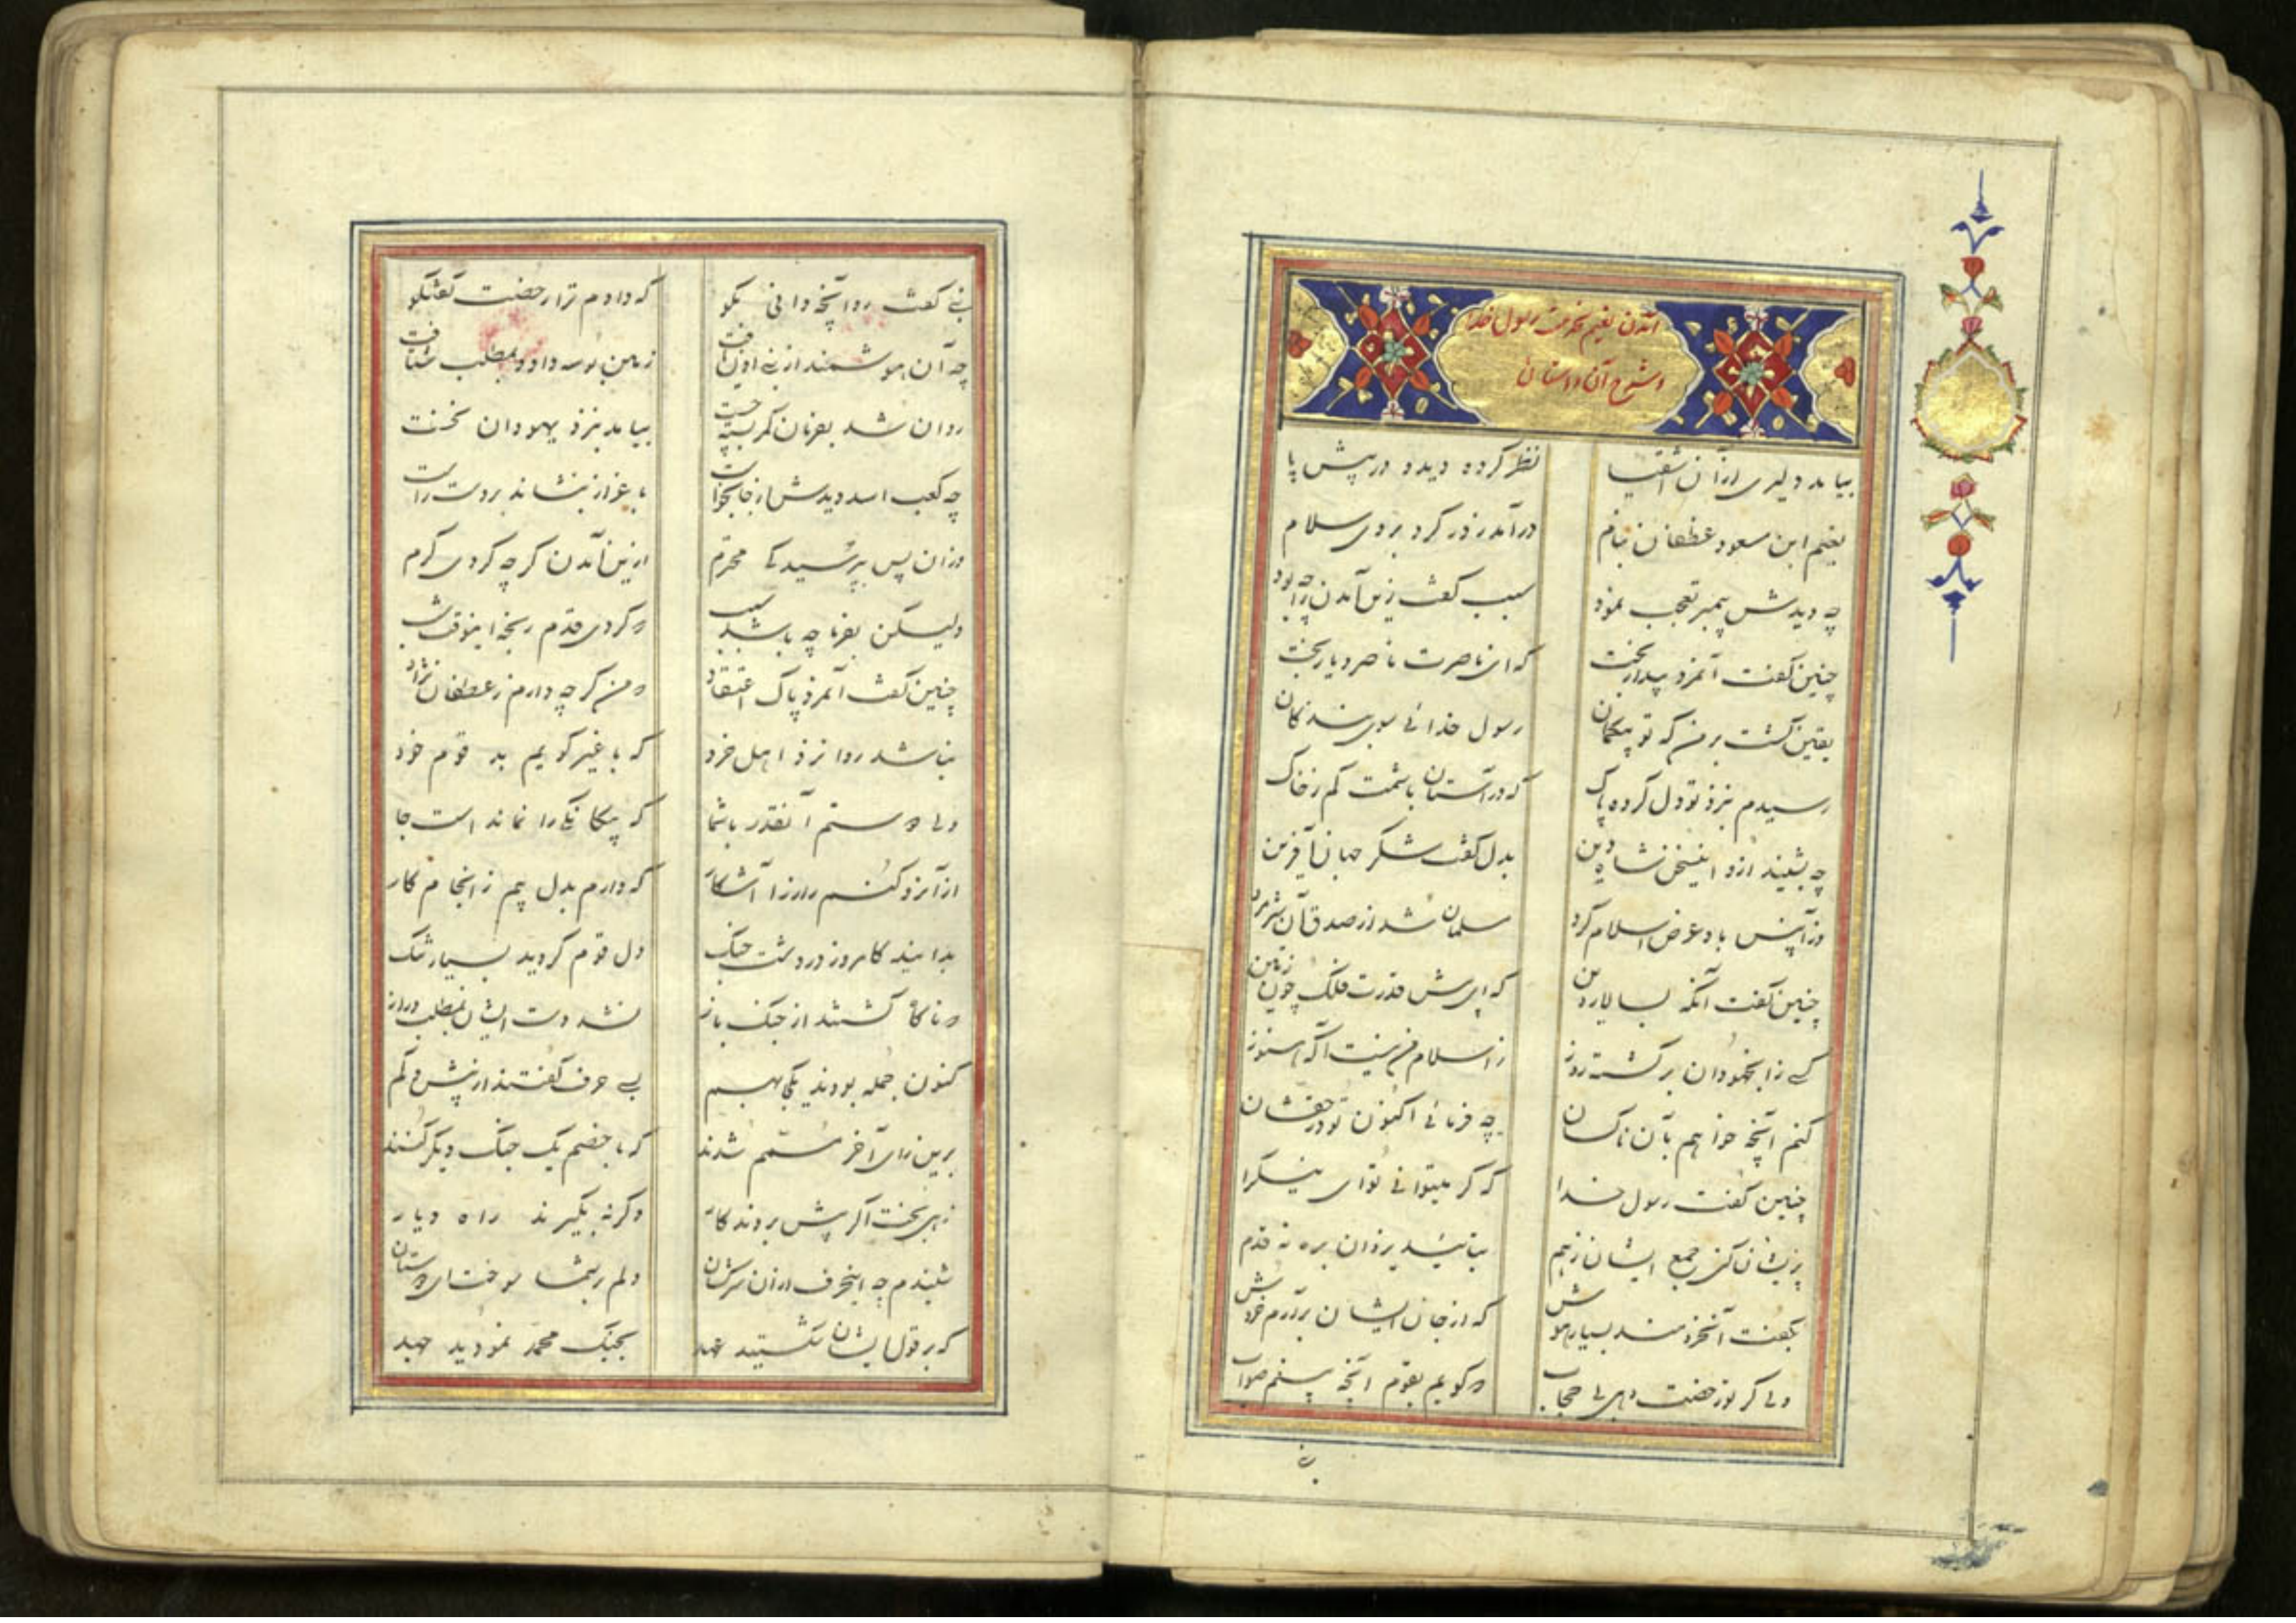 آمدن نعیم بخدمت رسول خدا
و شرح آن داستان
بیامد دلیری از آن اشقیا نظر کرده دیده در پیش پا
نعیم ابن مسعود غطفان بنام درآمد ز در کرد بر وی سلام
چه دیدش پیمبر تعجب نمود سبب گفت زین آمدن چه بود
چنین گفت آنمرد بیدار بخت که ای ناصرت ناصر و یار بخت
یقین گشت بر من که تو بیگمان رسول خدائی سوی بندگان
رسیدم بنزد تو دل کرده پاک که در آستان باشمت کم ز خاک
چه بشنید ازو اینسخن شاه دین بدل گفت شکر جهان آفرین
وز آنپس باو عرض اسلام کرد مسلمان شد از صدق آن شیرمرد
چنین گفت آنگه بسالار دین که ای پیش قدرت فلک چون زمین
کسی زا بخمودان برگشته روز ز اسلام من نیست آگه هنوز
کنم آنچه خواهم بآن ناکسان چه فرمائی اکنون تو در حقشان
چنین گفت رسول خدا که گر میتوانی تو ای نیکرا
پریشان کنی جمع ایشان ز هم بتائید یزدان بره نه قدم
بگفت آنخردمند بسیار هوش که از جان ایشان برآرم خروش
ولی گر بود رخصت دهی بی حجاب که گویم بقوم آنچه بینم صواب
نبی گفت رو آنچه دانی بگو که دادم ترا رخصت گفتگو
چه آن هوشمند از نبی اذن یافت زمین بوسه داد و بمطلب شتافت
روان شد بفرمان کمر بسته چست بیامد بنزد یهودان نخست
چه کعب اسد دیدش از جا بخواست باعزاز بنشاند بر دست راست
وزان پس بپرسید کای محترم ازین آمدن گرچه کردی کرم
ولیکن بفرما چه باشد سبب که کردی قدم رنجه اینوقت شب
چنین گفت آنمرد پاک اعتقاد که من گرچه دارم ز غطفان نژاد
نباشد روا نزد اهل خرد که با غیر گویم بد قوم خود
ولی دوستم آنقدر با شما که بیگانگی را نمانده است جا
از آنرو کنم راز را آشکار که دارم بدل بیم ز انجام کار
بدانید کامروز در دشت جنگ دل قوم گردید بسیار تنگ
که ناکام گشتند از جنگ باز نشد دست ایشان بمطلب دراز
کنون جمله بودند یکجا بهم بسی حرف گفتند از بیش و کم
برین رای آخر مسلم شدند که با خصم یک جنگ دیگر کنند
زهی بخت اگر پیش بردند کار وگرنه بگیرند راه دیار
شنیدم چه اینحرف از آن سرکشان دلم بر شما سوخت ای دوستان
که بر قول ایشان نگشتید عهد بجنگ محمد نمودید جهد